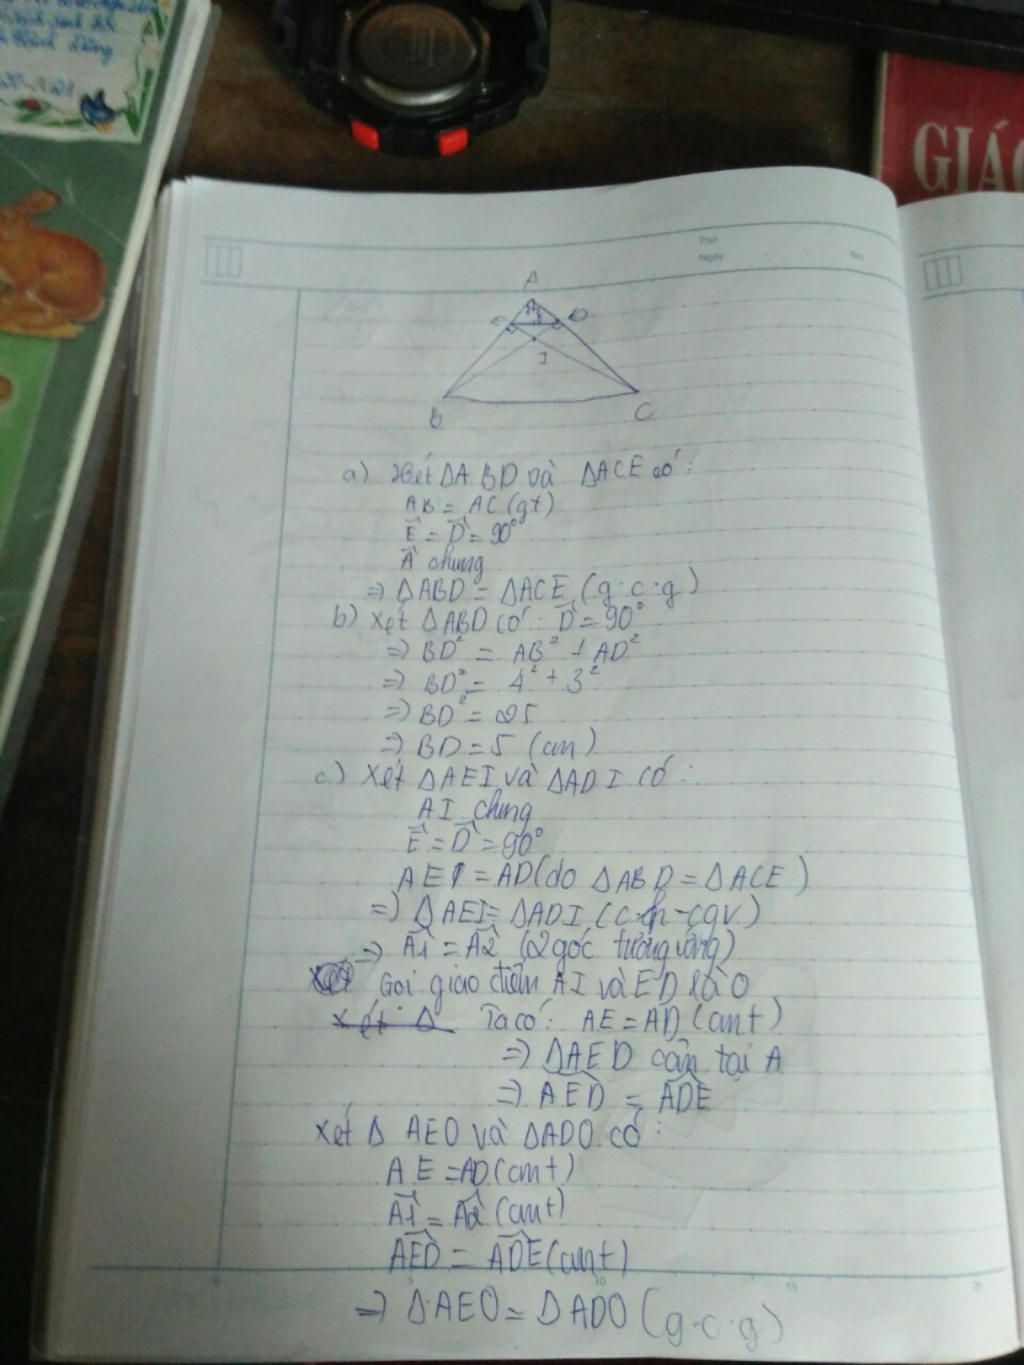 GIÁ
Thứ
Ngày
No.
A
E D
I
B C
a) Xét ΔABD và ΔACE có:
AB = AC (gt)
Ê = D̂ = 90°
Â chung
⇒ ΔABD = ΔACE (g.c.g)
b) Xét ΔABD có: D̂ = 90°
⇒ BD² = AB² + AD²
⇒ BD² = 4² + 3²
⇒ BD² = 25
⇒ BD = 5 (cm)
c) Xét ΔAEI và ΔADI có:
AI chung
Ê = D̂ = 90°
AE = AD (do ΔABD = ΔACE)
⇒ ΔAEI = ΔADI (ch-cgv)
⇒ Â1 = Â2 (2 góc tương ứng)
Gọi giao điểm AI và ED là O
Xét Δ Ta có: AE = AD (cmt)
⇒ ΔAED cân tại A
⇒ AED = ADE
Xét Δ AEO và ΔADO có:
AE = AD (cmt)
Â1 = Â2 (cmt)
AED = ADE (cmt)
⇒ ΔAEO = ΔADO (g.c.g)